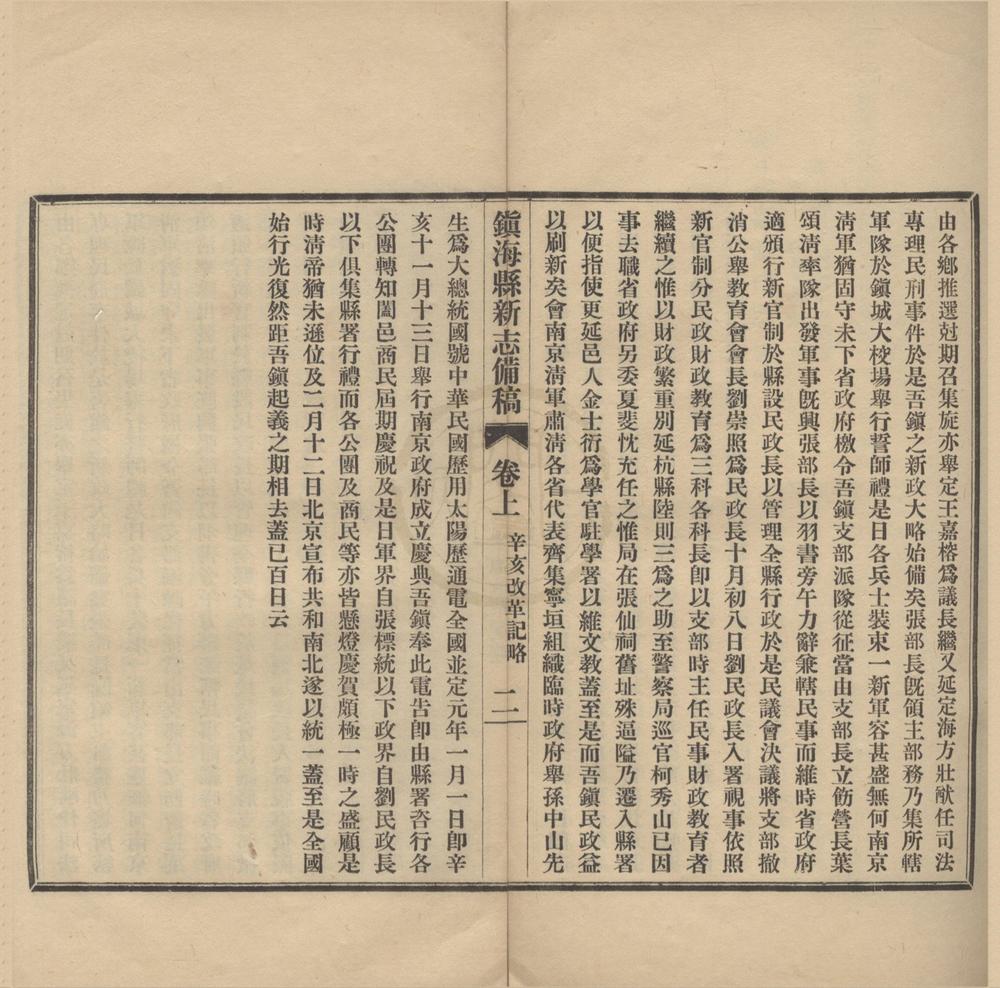 由各鄉推選尅期召集旋亦舉定王嘉榕爲議長繼又延定海方壯猷任司法
專理民刑事件於是吾鎭之新政大略始備矣張部長旣領主部務乃集所轄
軍隊於鎭城大校場舉行誓師禮是日各兵士裝束一新軍容甚盛無何南京
淸軍猶固守未下省政府檄令吾鎭支部派隊從征當由支部長立飭營長葉
頌淸率隊出發軍事旣興張部長以羽書旁午力辭兼轄民事而維時省政府
適頒行新官制於縣設民政長以管理全縣行政於是民議會決議將支部撤
消公舉教育會會長劉崇照爲民政長十月初八日劉民政長入署視事依照
新官制分民政財政教育爲三科各科長卽以支部時主任民事財政教育者
繼續之惟以財政繁重別延杭縣陸則三爲之助至警察局巡官柯秀山已因
事去職省政府另委夏斐忱充任之惟局在張仙祠舊址殊逼隘乃遷入縣署
以便指使更延邑人金士衍爲學官駐學署以維文教蓋至是而吾鎭民政益
以刷新矣會南京淸軍肅淸各省代表齊集寧垣組織臨時政府舉孫中山先
鎭海縣新志備稿 卷上 辛亥改革記略 二
生爲大總統國號中華民國歷用太陽歷通電全國並定元年一月一日卽辛
亥十一月十三日舉行南京政府成立慶典吾鎭奉此電吿卽由縣署咨行各
公團轉知闔邑商民屆期慶祝及是日軍界自張標統以下政界自劉民政長
以下俱集縣署行禮而各公團及商民等亦皆懸燈慶賀頗極一時之盛顧是
時淸帝猶未遜位及二月十二日北京宣布共和南北遂以統一蓋至是全國
始行光復然距吾鎭起義之期相去蓋已百日云